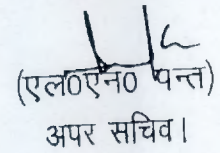 (एल0एन0 पन्त)
अपर सचिव।